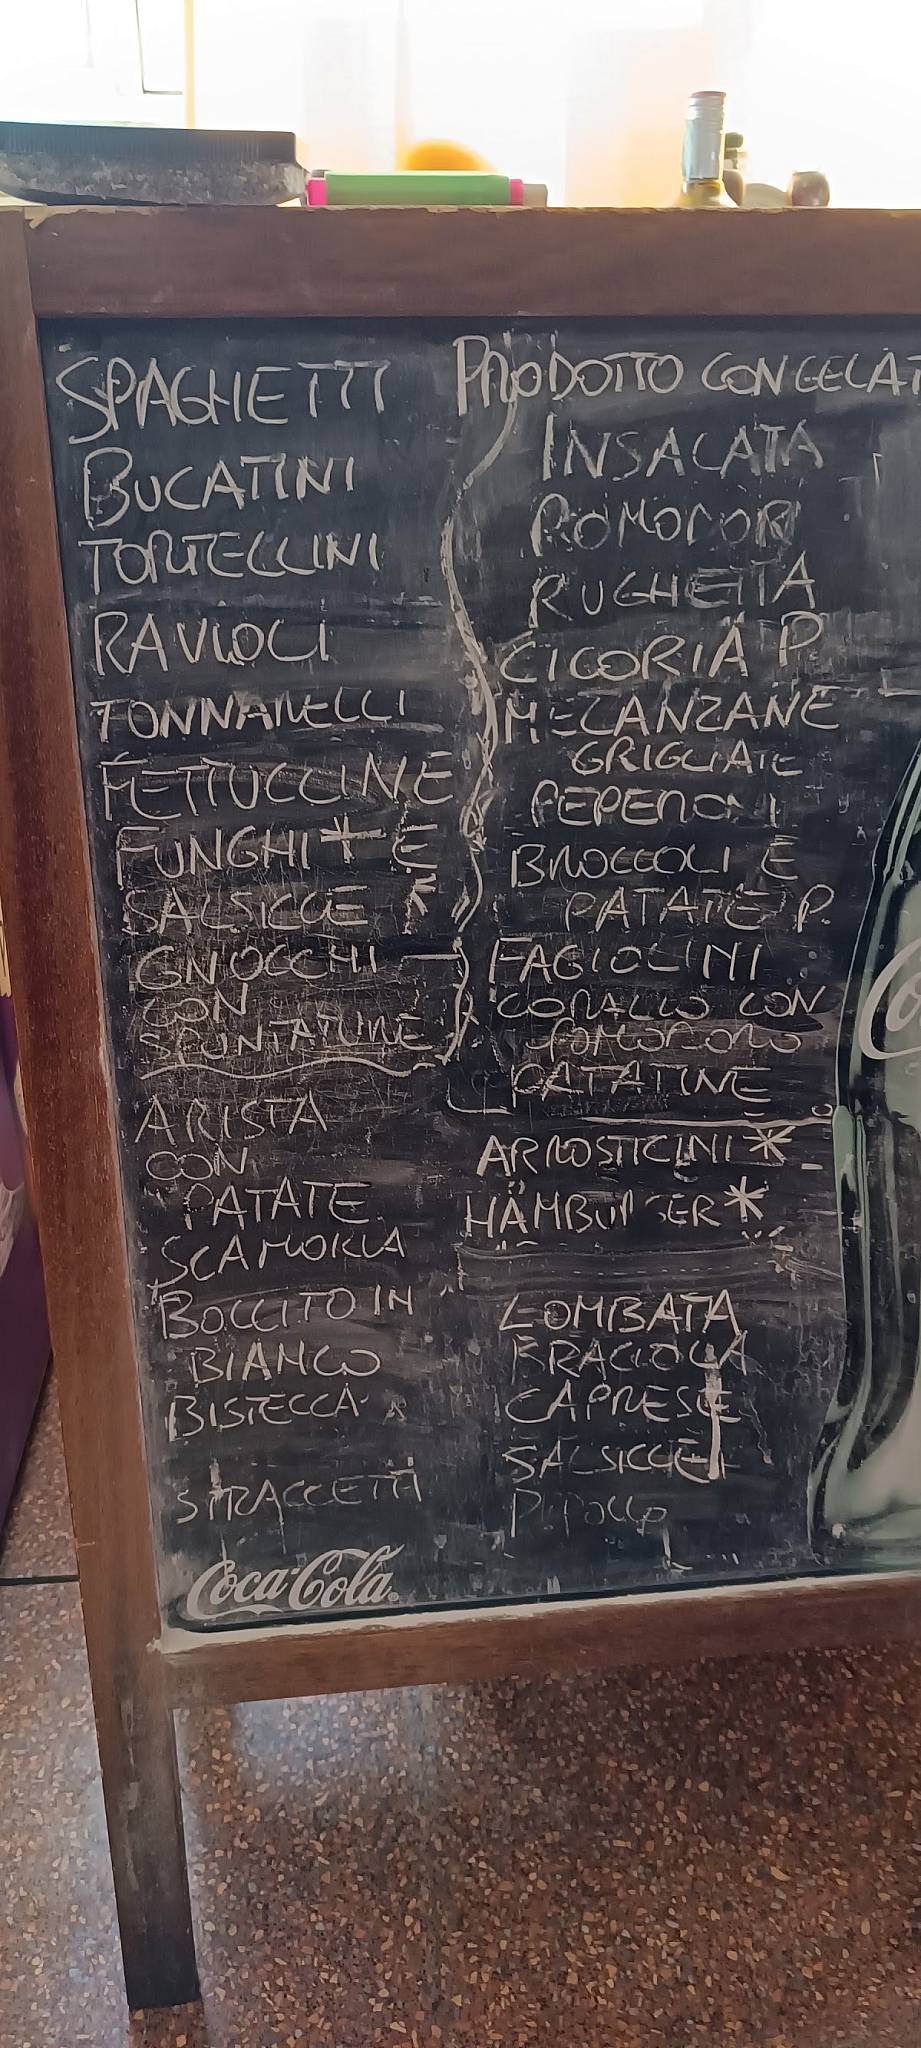 SPAGHETTI
BUCATINI
TORTELLINI
RAVIOLI
TONNARELLI
FETTUCCINE
FUNGHI* E
SALSICCE *
GNIOCCHI
CON
SPUNTATURE
ARISTA
CON
PATATE
SCAMORZA
BOLLITO IN
BIANCO
BISTECCA
STRACCETTI
Coca-Cola
PRODOTTO CONGELAT
INSALATA
POMODORI
RUGHETTA
CICORIA P.
MELANZANE
GRIGLIATE
PEPERONI
BROCCOLI E
PATATE P.
FAGIOLINI
CORALLO CON
POMODORO
PATATINE
ARROSTICINI *
HAMBURGER *
LOMBATA
BRACIOLA
CAPRESE
SALSICCE
P. POLLO